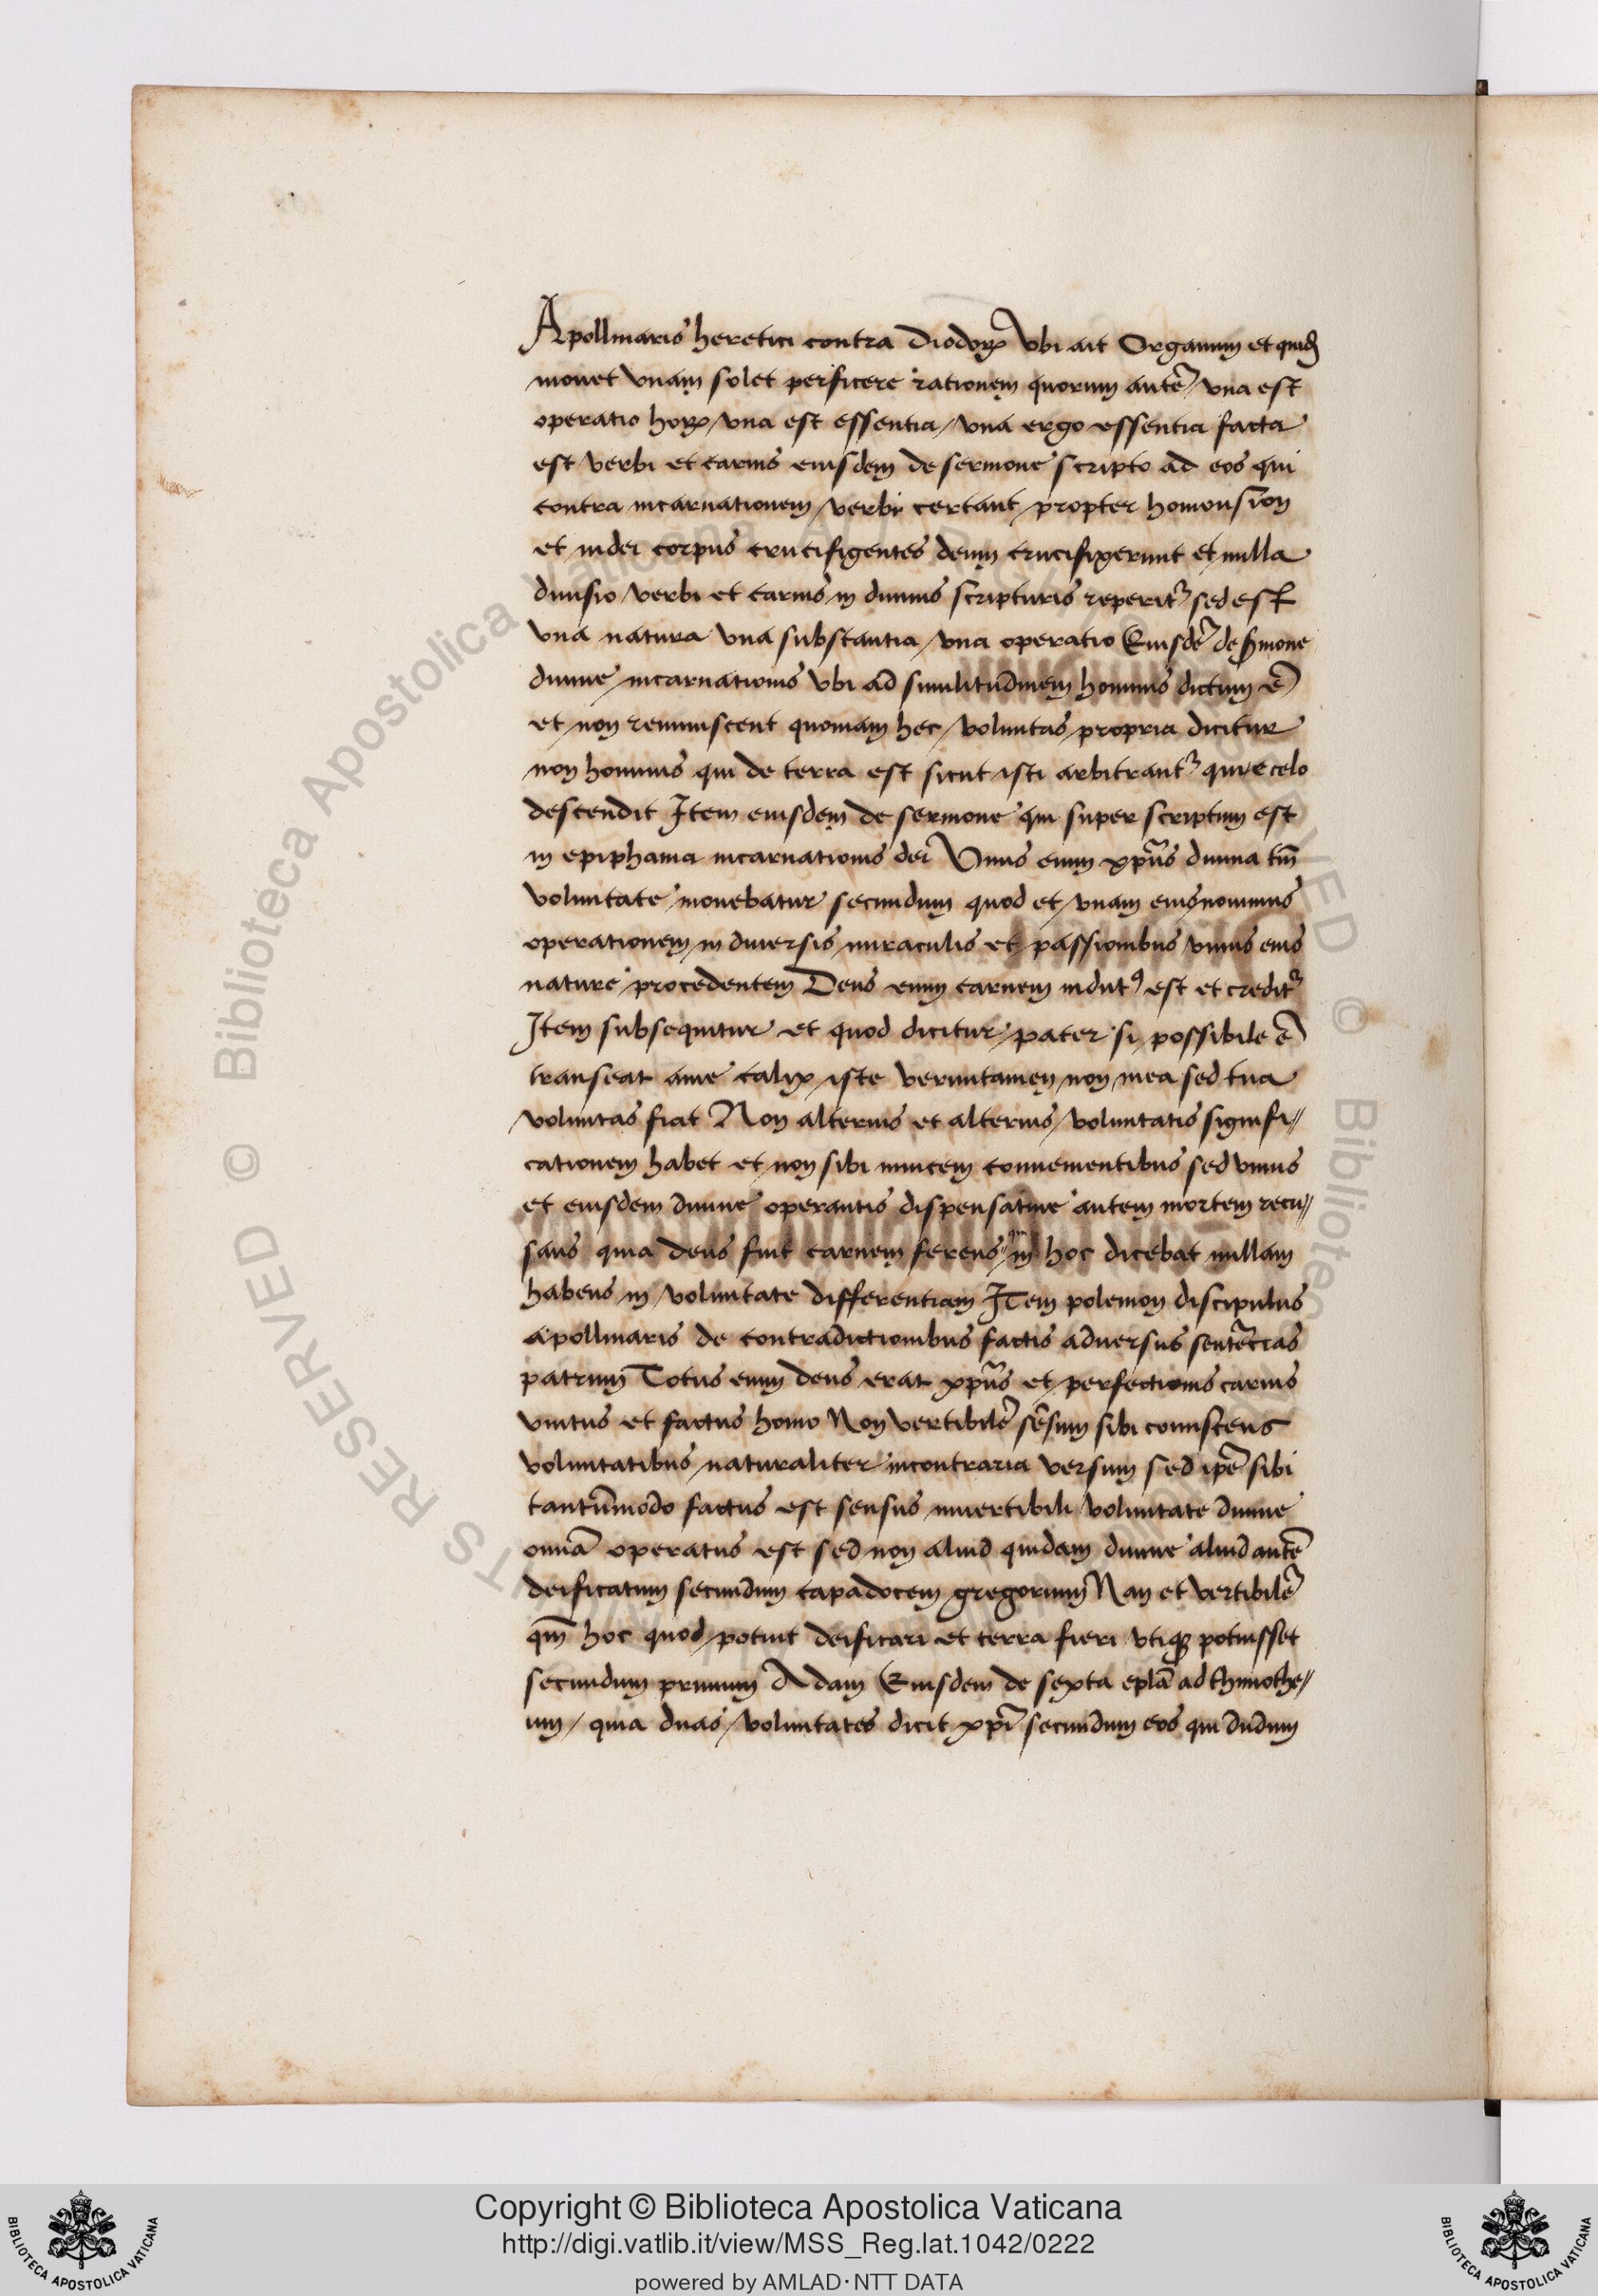 Apollinaris heretici contra Diodoꝝ Vbi ait Organum et quiđ
mouet vnam solet perficere rationem quorum autē vna est
operatio hoꝝ vna est essentia / vna ergo essentia facta
est verbi et carnis eiusdem de sermone scripto ad eos qui
contra incarnationem verbi certant propter homousion
et iudei corpus crucifigentes deum crucifixerunt et nulla
diuisio verbi et carnis in diuinis scripturis reperit᷑ sed est
vna natura vna substantia / vna operatio Eiusdē de s̄mone
diuine incarnationis vbi ad similitudinem hominis dictum ē
et non reminiscent quoniam hec voluntas propria dicitur
non hominis qui de terra est sicut isti arbitrant᷑ qui e celo
descendit Item eiusdem de sermone qui super scriptum est
in epiphania incarnationis dei Vnus enim xp̄us diuina tm̄
voluntate mouebatur secundum quod et vnam eius nouimus
operationem in diuersis miraculis et passionibus vnius eius
nature procedentem Deus enim carnem indutꝰ est et credit᷑
Item subsequitur et quod dicitur pater si possibile ē
transeat a me calix iste veruntamen non mea sed tua
voluntas fiat Non alterius et alterius voluntatis signifi⸗
cationem habet et non sibi inuicem conuenientibus sed vnius
et eiusdem diuine operantis dispensatiue autem mortem recu⸗
sans quia deus fuit carnem ferens in hoc dicebat nullam
habens in voluntate differentiam Item polemon discipulus
apollinaris de contradictionibus factis aduersus sentēcias
patrum Totus enim deus erat xp̄us et perfectionis carnis
vnitus et factus homo Non vertibilē sēsum sibi coniuscens
voluntatibus naturaliter in contraria versum sed ip̄e sibi
tantūmodo factus est sensus inuertibili voluntate diuine
omīa operatus est sed non aliud quidam diuine aliud autē
deificatum secundum capadocem gregorium Nam et vertibilē
qm̄ hoc quod potuit deificari et terra fieri vtiqꝫ potuisset
secundum primum Adam Eiusdem de sexta eplā ad thimothe⸗
um / quia duas voluntates dicit xpī secundum eos qui dudum
Copyright © Biblioteca Apostolica Vaticana
http://digi.vatlib.it/view/MSS_Reg.lat.1042/0222
powered by AMLAD·NTT DATA